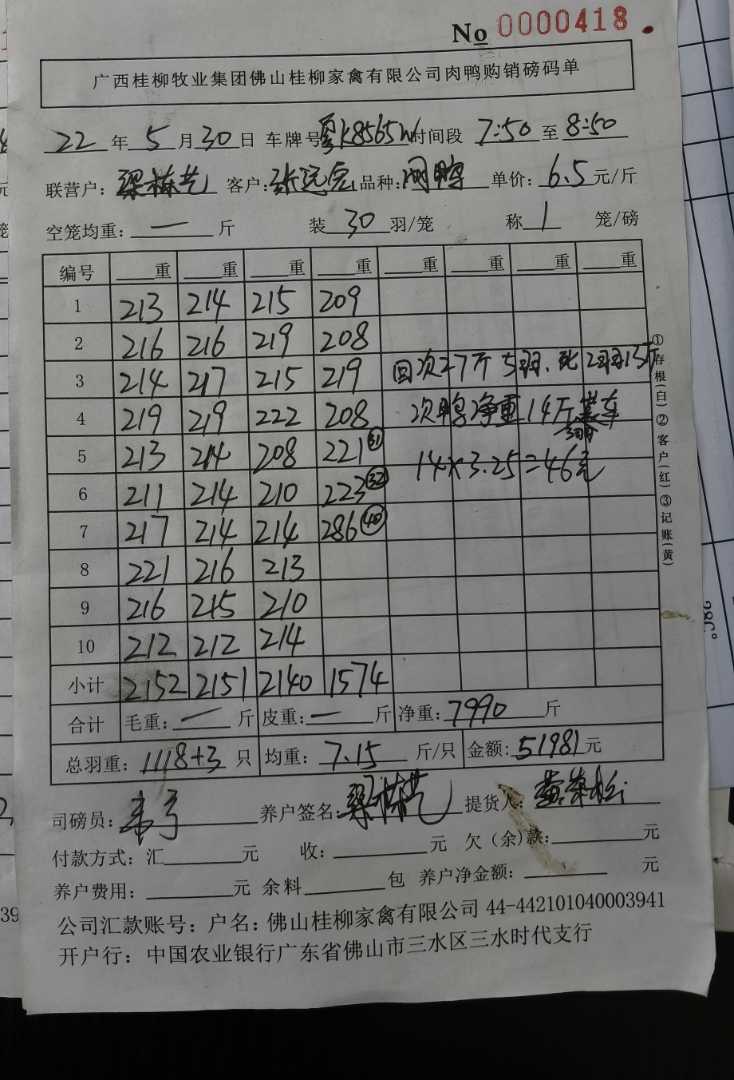 No 0000418
广西桂柳牧业集团佛山桂柳家禽有限公司肉鸭购销磅码单
22 年 5 月 30 日 车牌号 粤K8565W 时间段 7:50 至 8:50
联营户: 梁栋艺 客户: 张远宏 品种: 肉鸭 单价: 6.5 元/斤
空笼均重: 一 斤 装 30 羽/笼 称 1 笼/磅
编号 重 重 重 重 重 重 重 重
1 213 214 215 209
2 216 216 219 208
3 214 217 215 219 回次27斤5羽.死2羽13斤
4 219 219 222 208 次鸭净重14斤 3羽 装车
5 213 214 208 221 (31) 14×3.25=46元
6 211 214 210 223 (32)
7 217 214 214 286 (40)
8 221 216 213
9 216 215 210
10 212 212 214
小计 2152 2151 2140 1574
合计 毛重: 一 斤 皮重: 一 斤 净重: 7990 斤
总羽重: 1118+3 只 均重: 7.15 斤/只 金额: 51981 元
司磅员: 养户签名: 梁栋艺 提货人:
付款方式: 汇 元 收: 元 欠(余)款: 元
养户费用: 元 余料 包 养户净金额: 元
公司汇款账号: 户名: 佛山桂柳家禽有限公司 44-442101040003941
开户行: 中国农业银行广东省佛山市三水区三水时代支行
①存根(白)②客户(红)③记账(黄)